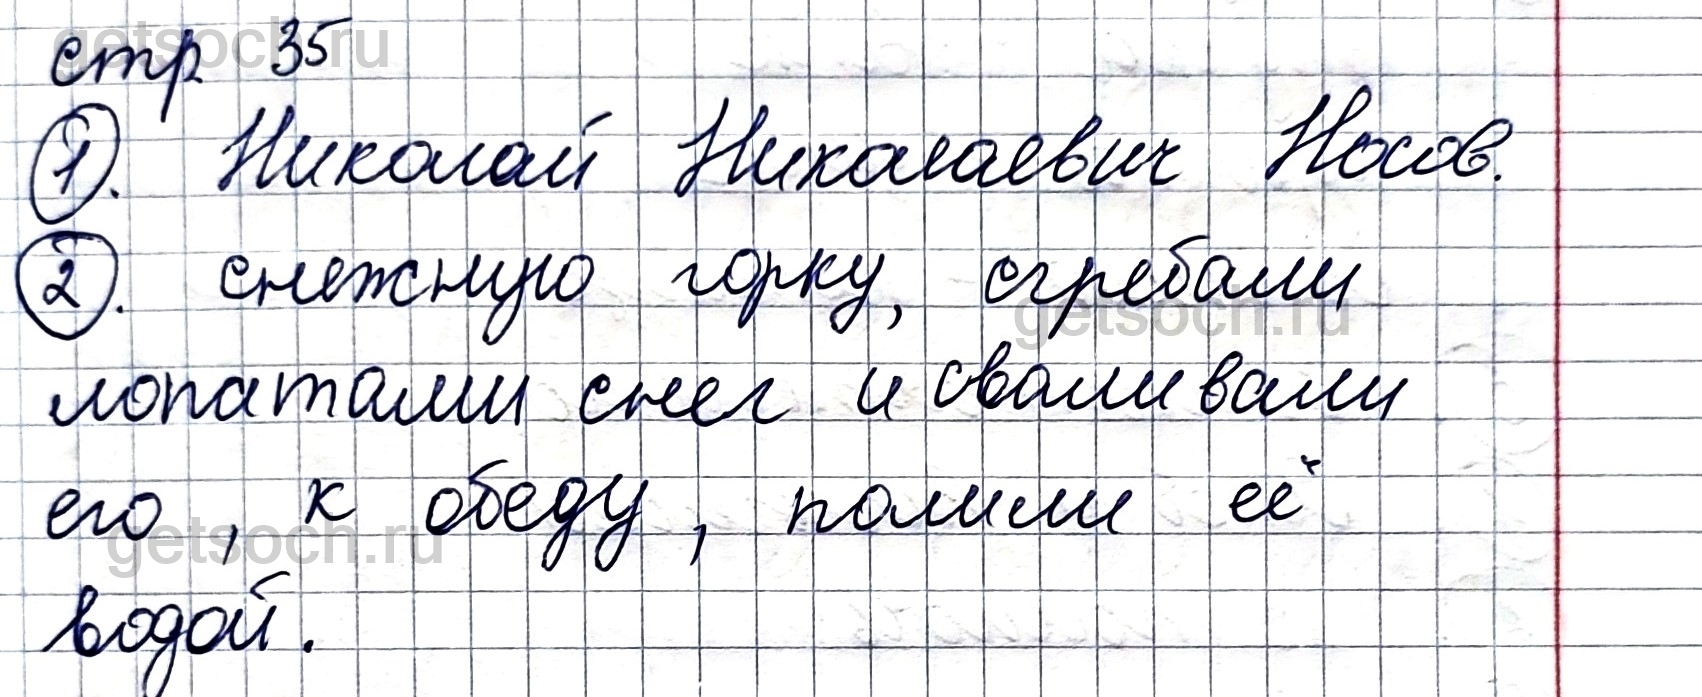 стр 35
1. Николай Николаевич Носов.
2. снежную горку, сгребали
лопатами снег и сваливали
его, к обеду, полили её
водой.
getsoch.ru
getsoch.ru
getsoch.ru